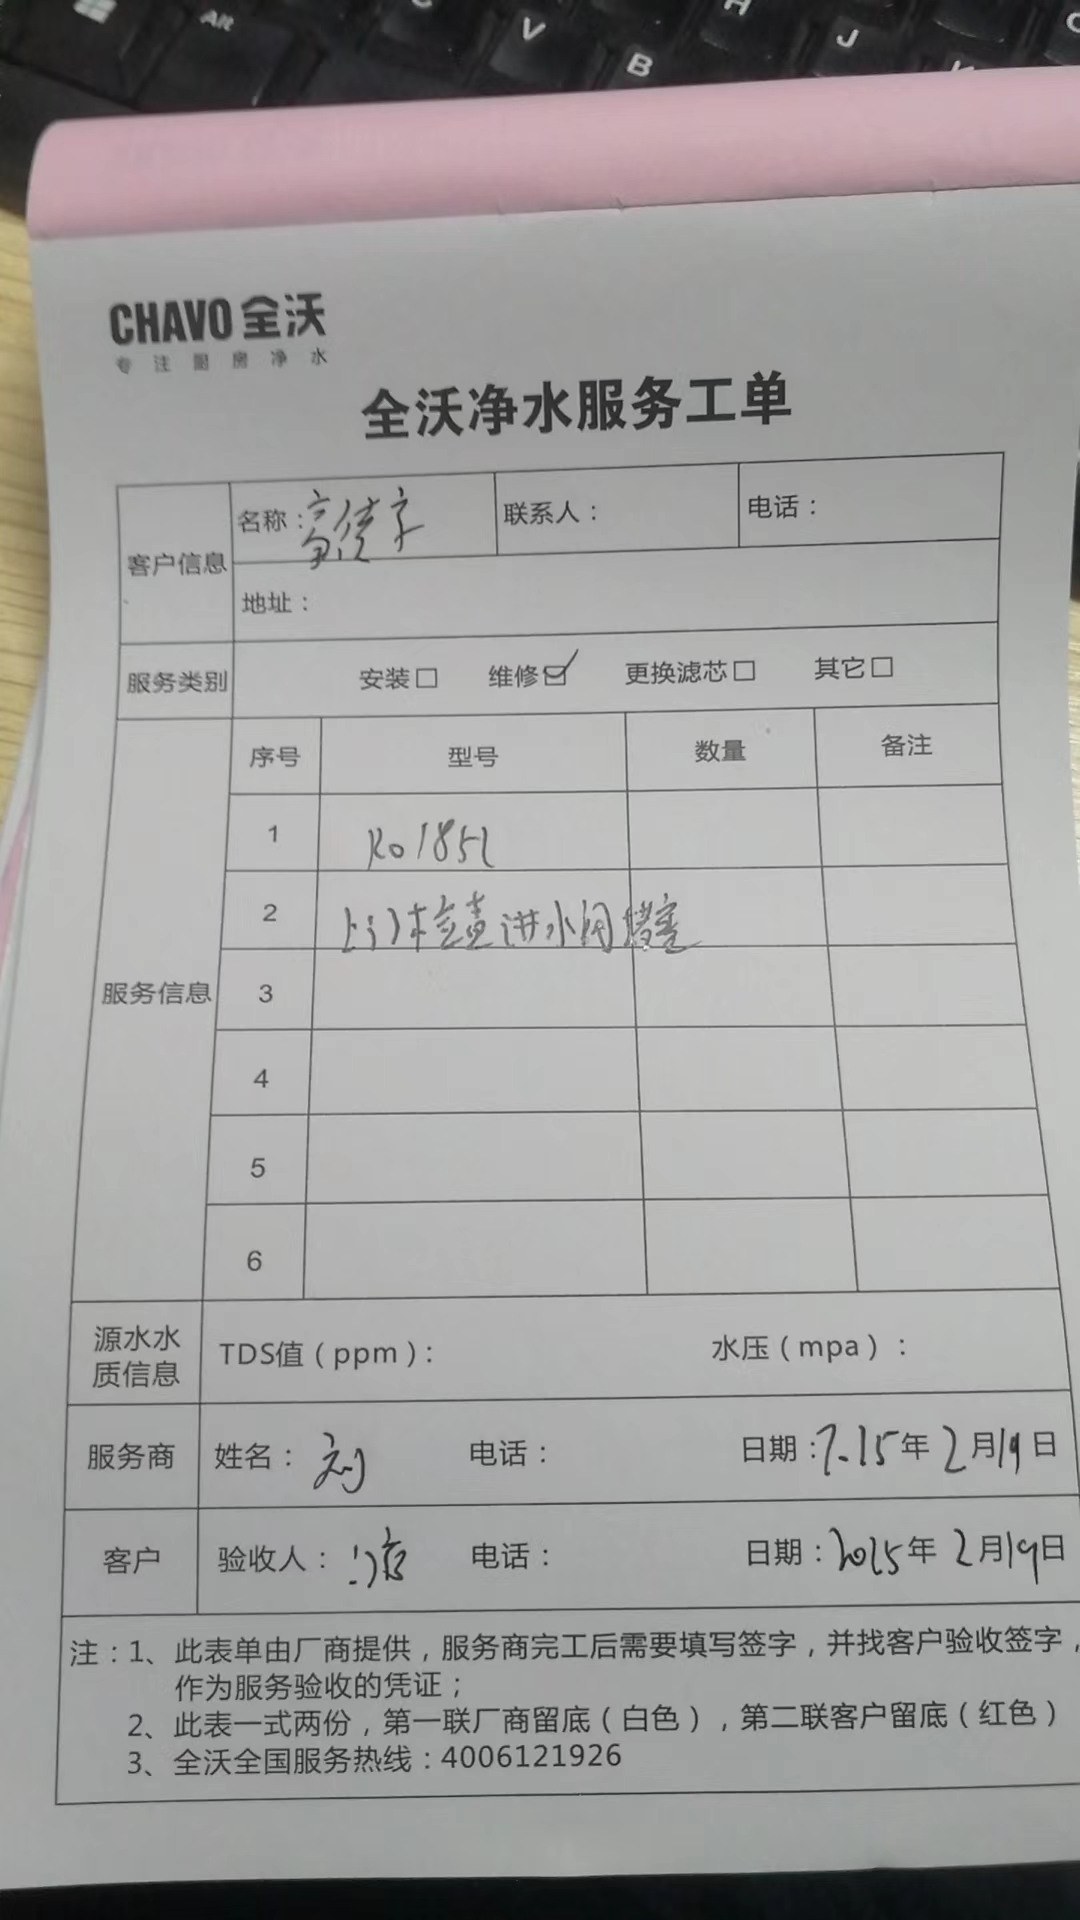 Alt
C
V
B
H
J
K
CHAVO 全沃
专注厨房净水
全沃净水服务工单
客户信息
名称：
联系人：
电话：
地址：
服务类别
安装□ 维修☑ 更换滤芯□ 其它□
服务信息
序号 型号 数量 备注
1 Ro185L
2 上门检查进水阀堵塞
3
4
5
6
源水水质信息
TDS值（ppm）： 水压（mpa）：
服务商 姓名：刘 电话： 日期： 年2月19日
客户 验收人： 电话： 日期：2025年2月19日
注：1、此表单由厂商提供，服务商完工后需要填写签字，并找客户验收签字，
作为服务验收的凭证；
2、此表一式两份，第一联厂商留底（白色），第二联客户留底（红色）
3、全沃全国服务热线：4006121926